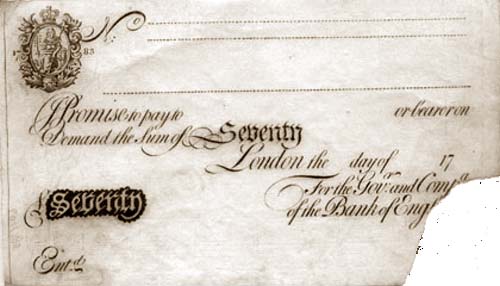 17 83 No
I Promise to pay to or bearer on
Demand the Sum of Seventy
London the day of 17
For the Govr. and Compa.
of the Bank of Engl
£ Seventy
Entd.